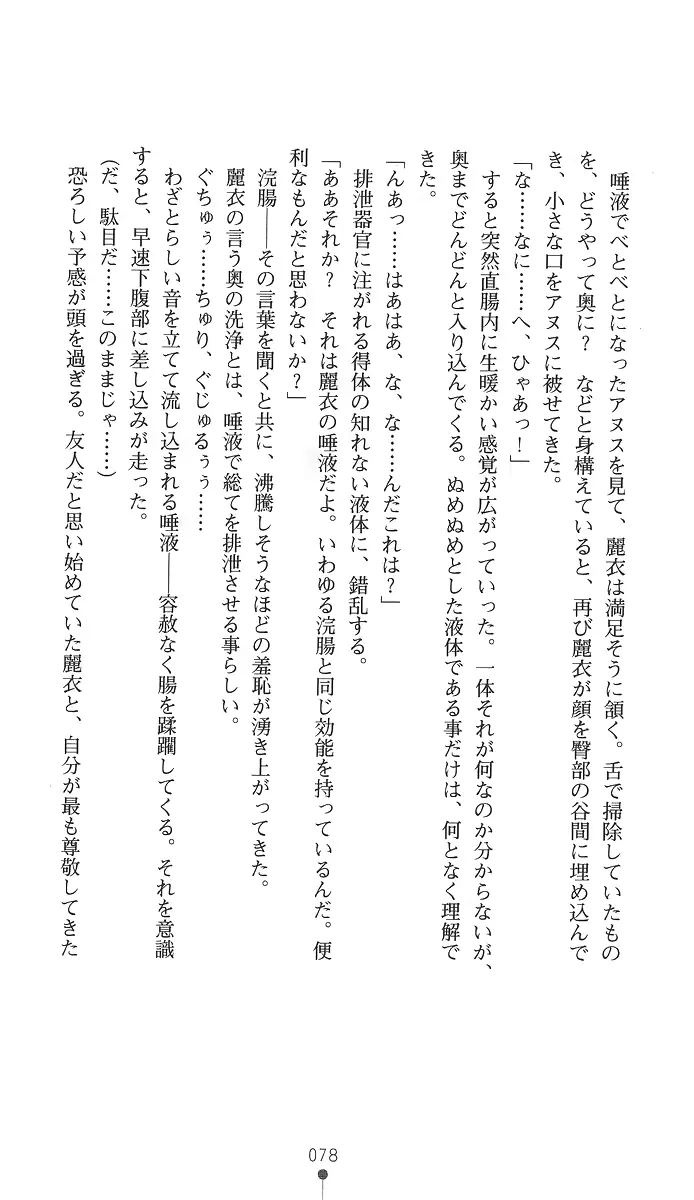 唾液でべとべとになったアヌスを見て、麗衣は満足そうに頷く。舌で掃除していたもの
を、どうやって奥に？　などと身構えていると、再び麗衣が顔を臀部の谷間に埋め込んで
き、小さな口をアヌスに被せてきた。
「な……なに……へ、ひゃあっ！」
すると突然直腸内に生暖かい感覚が広がっていった。一体それが何なのか分からないが、
奥までどんどんと入り込んでくる。ぬめぬめとした液体である事だけは、何となく理解で
きた。
「んあっ……はあはあ、な、な……んだこれは？」
排泄器官に注がれる得体の知れない液体に、錯乱する。
「ああそれか？　それは麗衣の唾液だよ。いわゆる浣腸と同じ効能を持っているんだ。便
利なもんだと思わないか？」
浣腸――その言葉を聞くと共に、沸騰しそうなほどの羞恥が湧き上がってきた。
麗衣の言う奥の洗浄とは、唾液で総てを排泄させる事らしい。
ぐちゅぅ……ちゅり、ぐじゅるぅぅ……
わざとらしい音を立てて流し込まれる唾液――容赦なく腸を蹂躙してくる。それを意識
すると、早速下腹部に差し込みが走った。
（だ、駄目だ……このままじゃ……）
恐ろしい予感が頭を過ぎる。友人だと思い始めていた麗衣と、自分が最も尊敬してきた
078